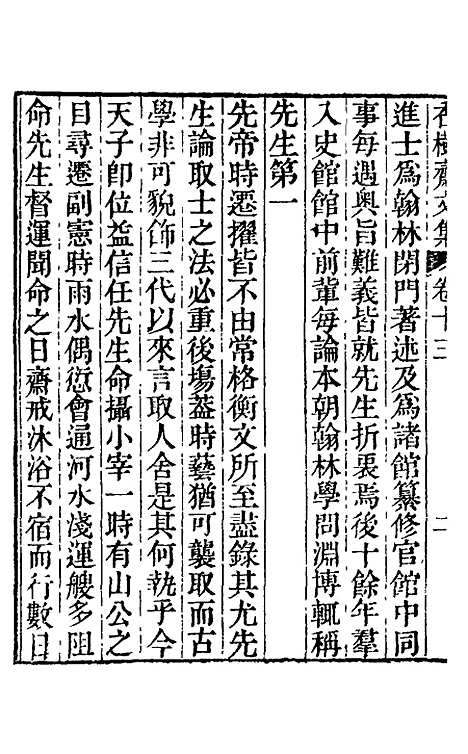 香樹齋文集 卷十三 二
進士爲翰林閉門著述及爲諸館纂修官館中同
事每遇奧旨難義皆就先生折衷焉後十餘年羣
入史館館中前輩每論本朝翰林學問淵博輒稱
先生第一
先帝時遷擢皆不由常格衡文所至盡錄其尤先
生論取士之法必重後塲蓋時藝猶可襲取而古
學非可貌飾三代以來言取人舍是其何執乎今
天子卽位益信任先生命攝小宰一時有山公之
目尋遷副憲時雨水偶愆會通河水淺運艘多阻
命先生督運聞命之日齋戒沐浴不宿而行數日